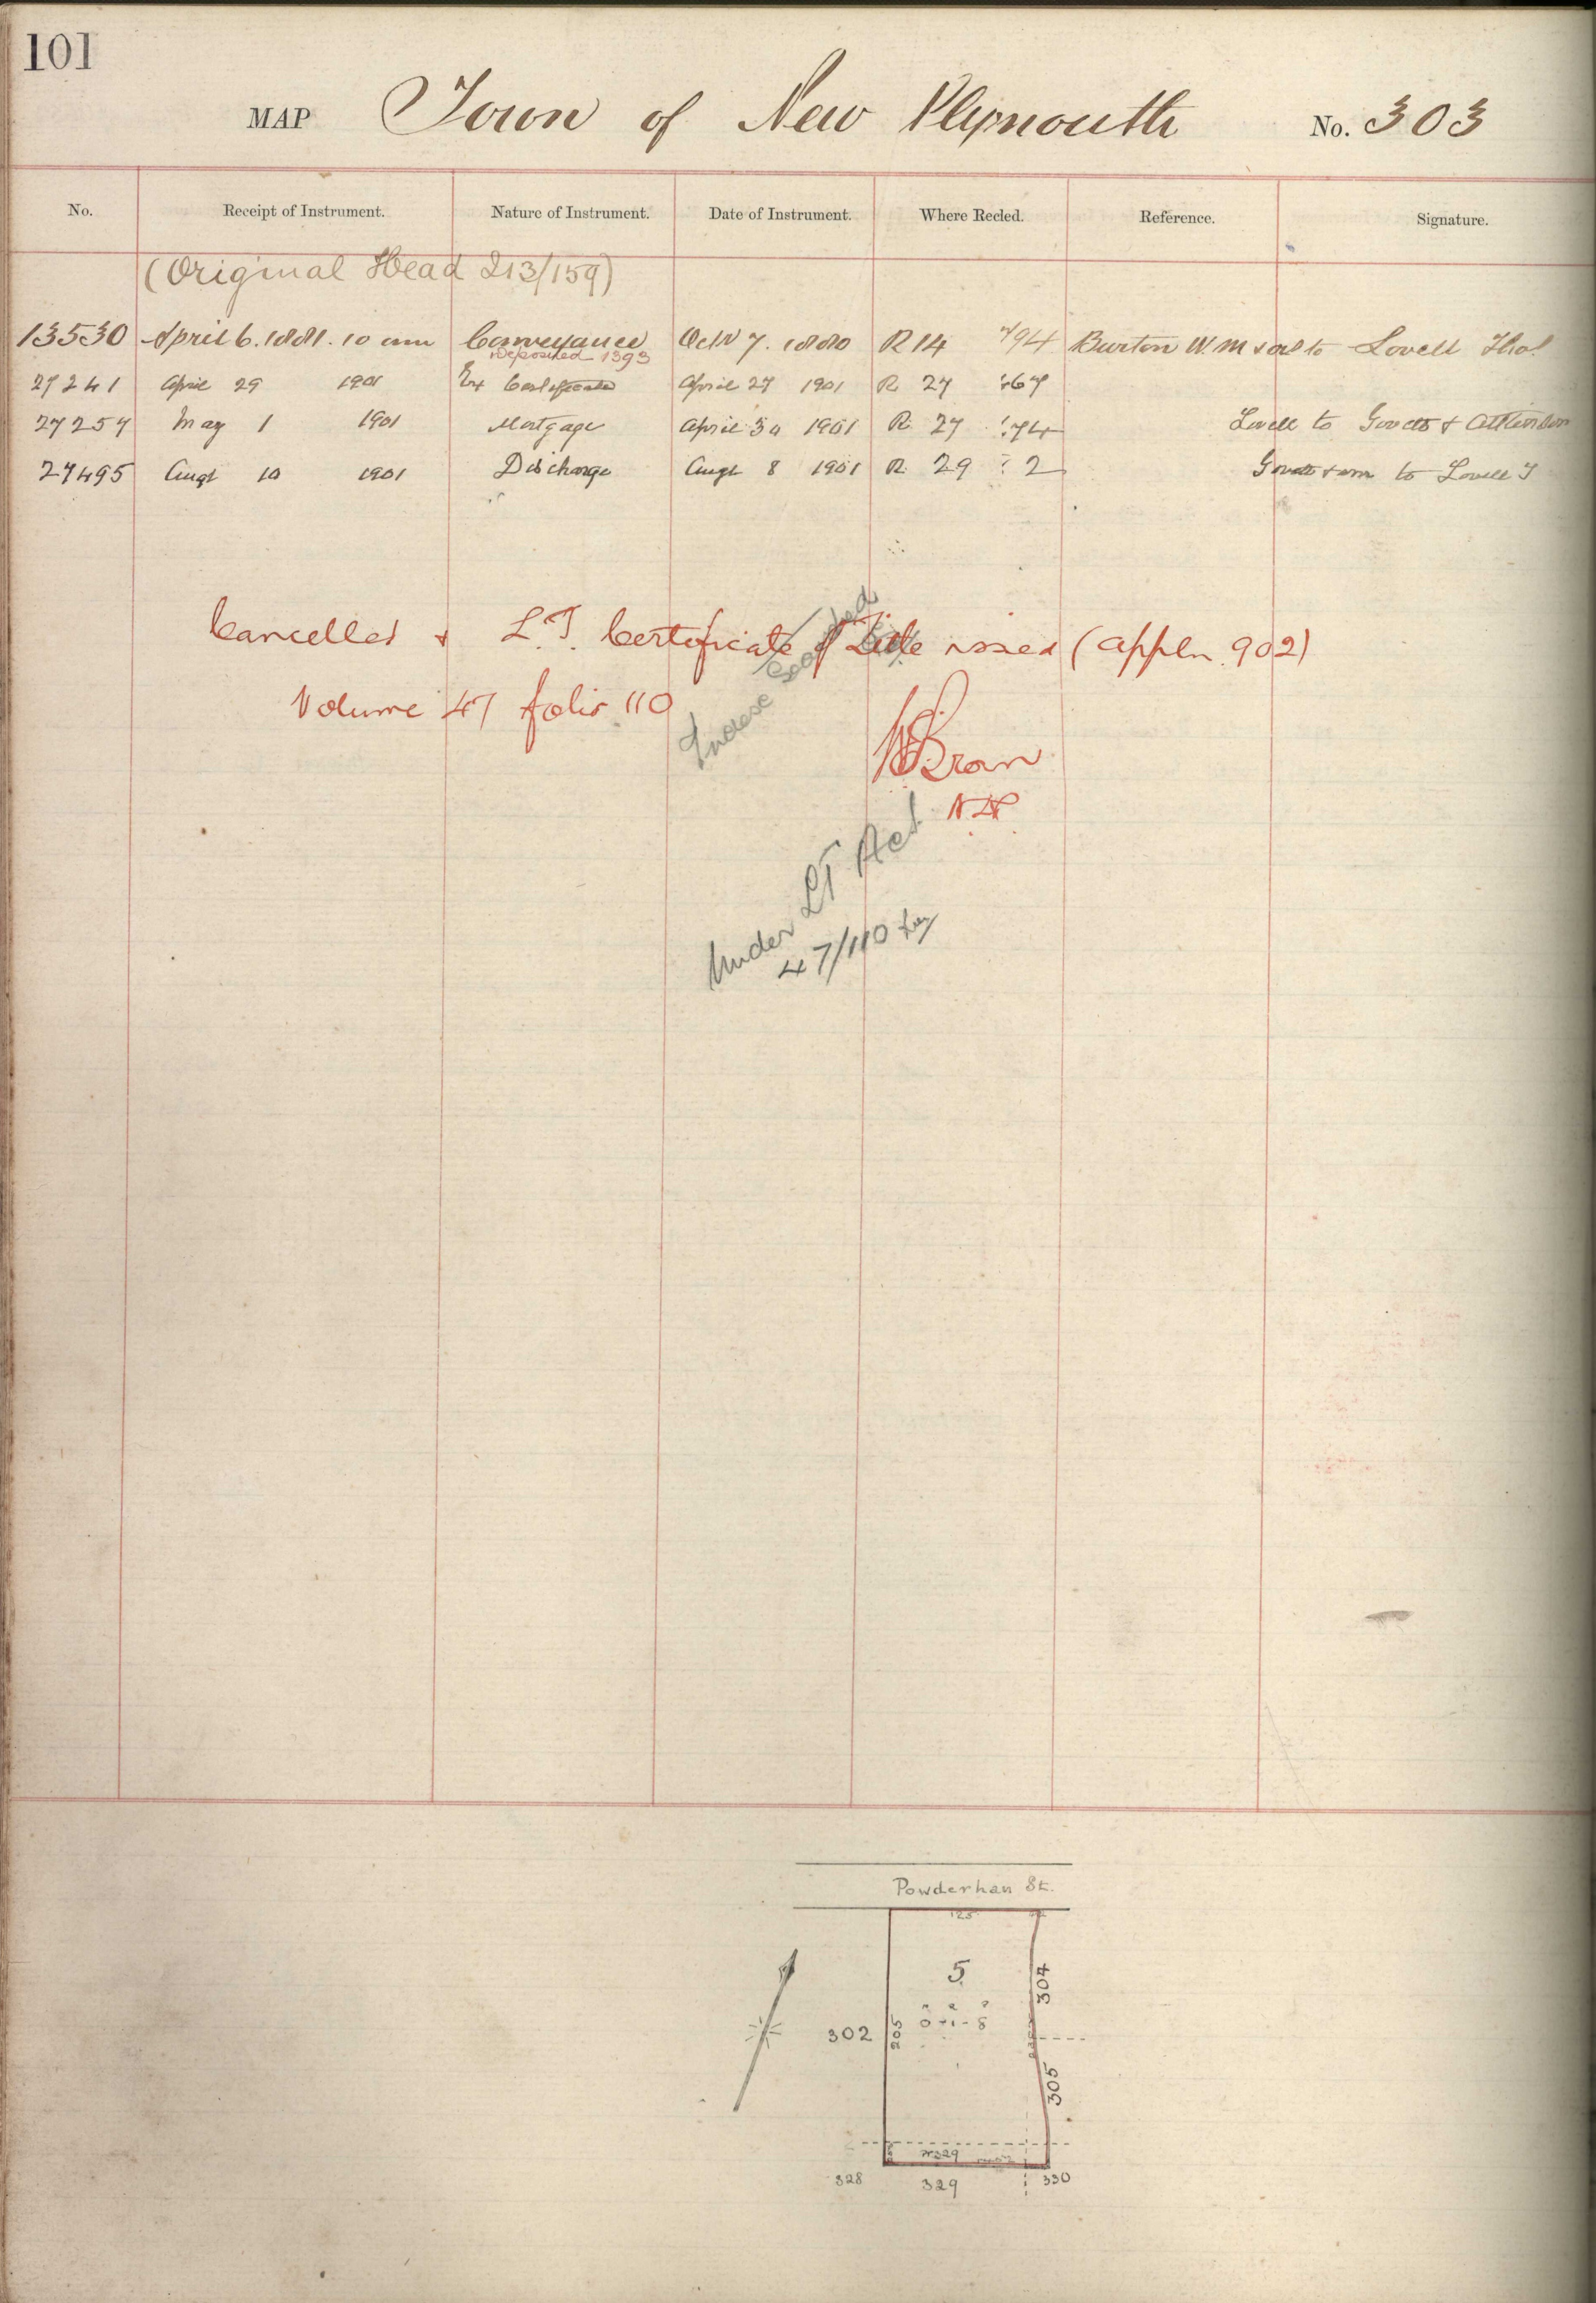 101
MAP Town of New Plymouth No. 303
No. Receipt of Instrument. Nature of Instrument. Date of Instrument. Where Recled. Reference. Signature.
(Original Head 213/159)
13530 April 6. 1881. 10 am Conveyance Octr 7. 1880 R 14 794 Burton W. M & orl to Lovell Thos
Deposited 1393
27241 April 29 1901 Ex Certificate April 27 1901 R 27
27257 May 1 1901 Mortgage April 30 1901 R. 27 Lovell to Govett & Atkinson
27495 Augt 10 1901 Discharge Augt 8 1901 R. 29 2 Govett & anr to Lovell T
Cancelled & L.T. Certificate of Title issued (Appln. 902)
Volume 47 folio 110
Under LT Act
47/110
Powderhan St.
125
5.
304
302
205
0-1-8
305
328 329 330